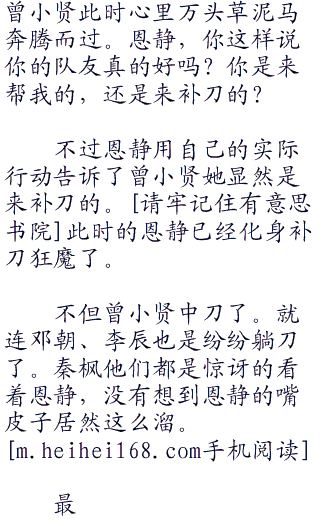 曾小贤此时心里万头草泥马
奔腾而过。恩静，你这样说
你的队友真的好吗？你是来
帮我的，还是来补刀的？
不过恩静用自己的实际
行动告诉了曾小贤她显然是
来补刀的。[请牢记住有意思
书院]此时的恩静已经化身补
刀狂魔了。
不但曾小贤中刀了。就
连邓朝、李辰也是纷纷躺刀
了。秦枫他们都是惊讶的看
着恩静，没有想到恩静的嘴
皮子居然这么溜。
[m.heihei168.com手机阅读]
最